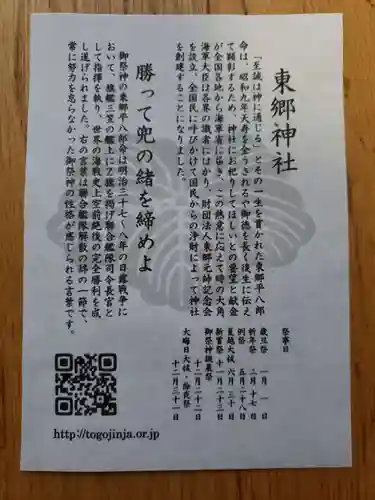 東郷神社
「至誠は神に通じる」とその一生を貫かれた東郷平八郎
命は、昭和九年天寿を全うされるや御徳を長く後生に伝え
て顕彰するため、神社にお祀りしてほしいとの要望と献金
が全国各地から海軍省に届き、この熱意に応えて時の大角
海軍大臣は各界の識者にはかり、財団法人東郷元帥記念会
を設立、全国民に呼びかけて国民からの浄財によって神社
を創建することになりました。
勝って兜の緒を締めよ
御祭神の東郷平八郎命は明治三十七〜八年の日露戦争に
おいて、旗艦三笠の艦上にZ旗を掲げ聯合艦隊司令長官と
して指揮を執り、世界の海戦史上空前絶後の完全勝利を成
し遂げられました。右の言葉は聯合艦隊解散の辞の一節で、
常に努力を怠らなかった御祭神の性格が感じられる言葉です。
祭事日
歳旦祭 一月一日
新年祭 二月十七日
例祭 五月二十八日
夏越大祓 六月三十日
新嘗祭 十一月二十三日
御祭神誕辰祭 十二月二十二日
大晦日大祓・除夜祭 十二月三十一日
http://togojinja.or.jp